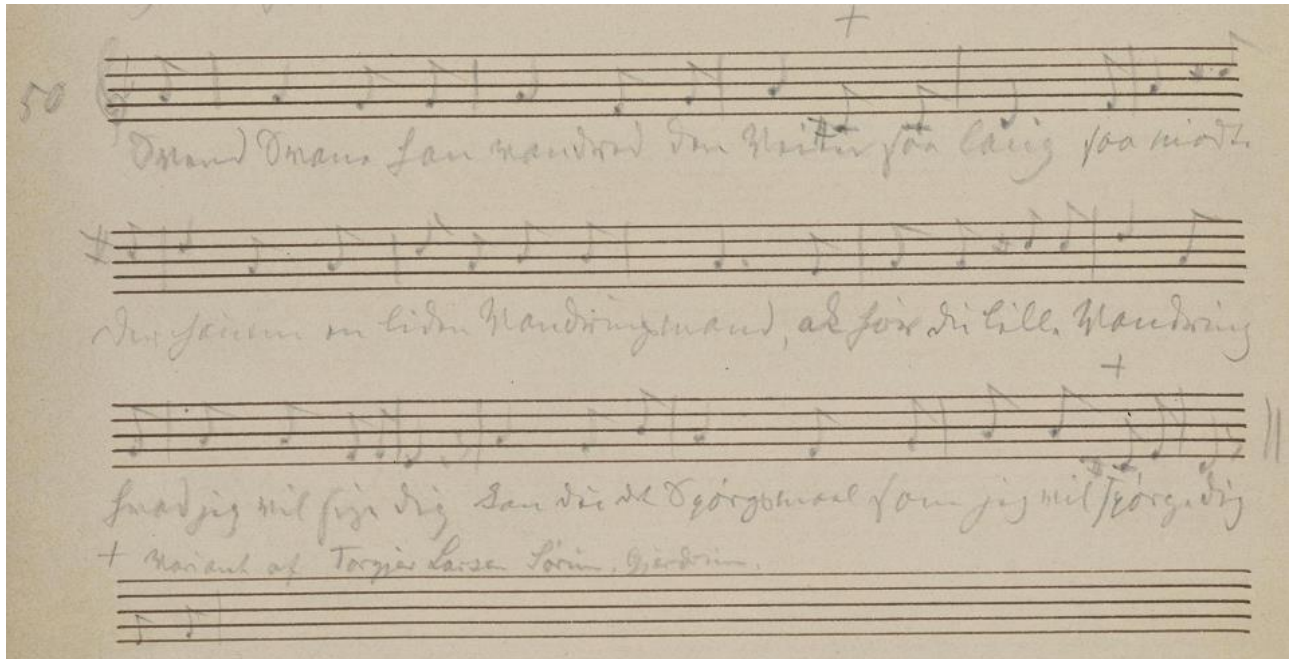 50
+
Svend Svane han vandred den Veien saa lang saa mødte
der hannem en liden Vandringsmand, ak hør du lille Vandring
hvad jeg vil sige dig kan du det Spörgsmaal som jeg vil spörge dig
+
+ Variant af Torgjer Larsen Sörum, Gjerdrum.